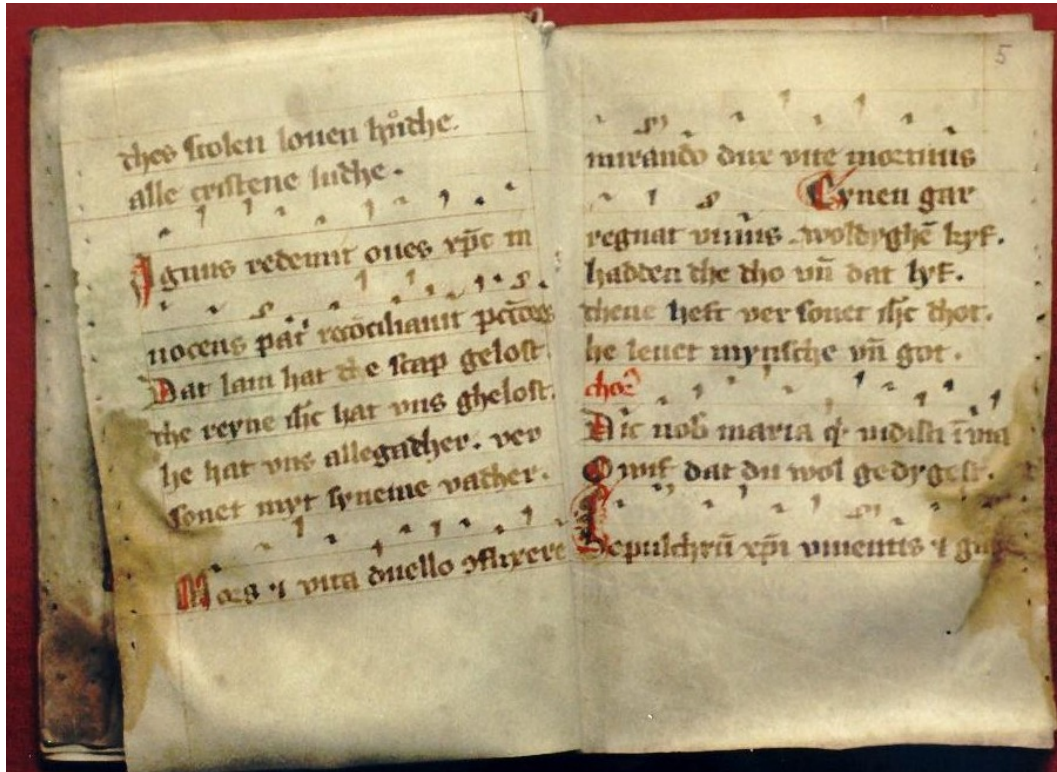 thes scolen louen hůthe.
alle cristene luthe.
Agnus redemit oues xp̄c in
nocens pat' recōciliauit pctōres
Dat lam hat the scap gelost.
the reyne ihc hat vns ghelost.
he hat vns allegather. ver
sonet myt syneme vather.
Mors ⁊ vita duello ɔflixere
5
mirando dux vite mortuus
Eynen gar
regnat viuus. woldyghē kyf.
hadden the tho vn̄ dat lyf.
thene heft ver sonet ihc thot.
he leuet mynsche vn̄ got.
chor̄
Dic nob maria qͥ vidisti ī via
O wif dat du wol gedygest.
Sepulchrū xp̄i viuentis ⁊